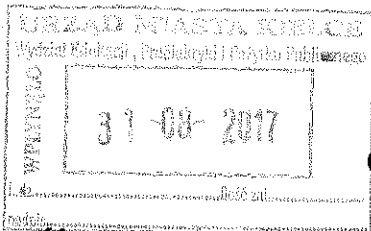 URZĄD MIASTA KIELCE
Wydział Edukacji, Profilaktyki i Pożytku Publicznego
WPŁYNĘŁO
31 -08- 2017
Ilość zał.
podpis